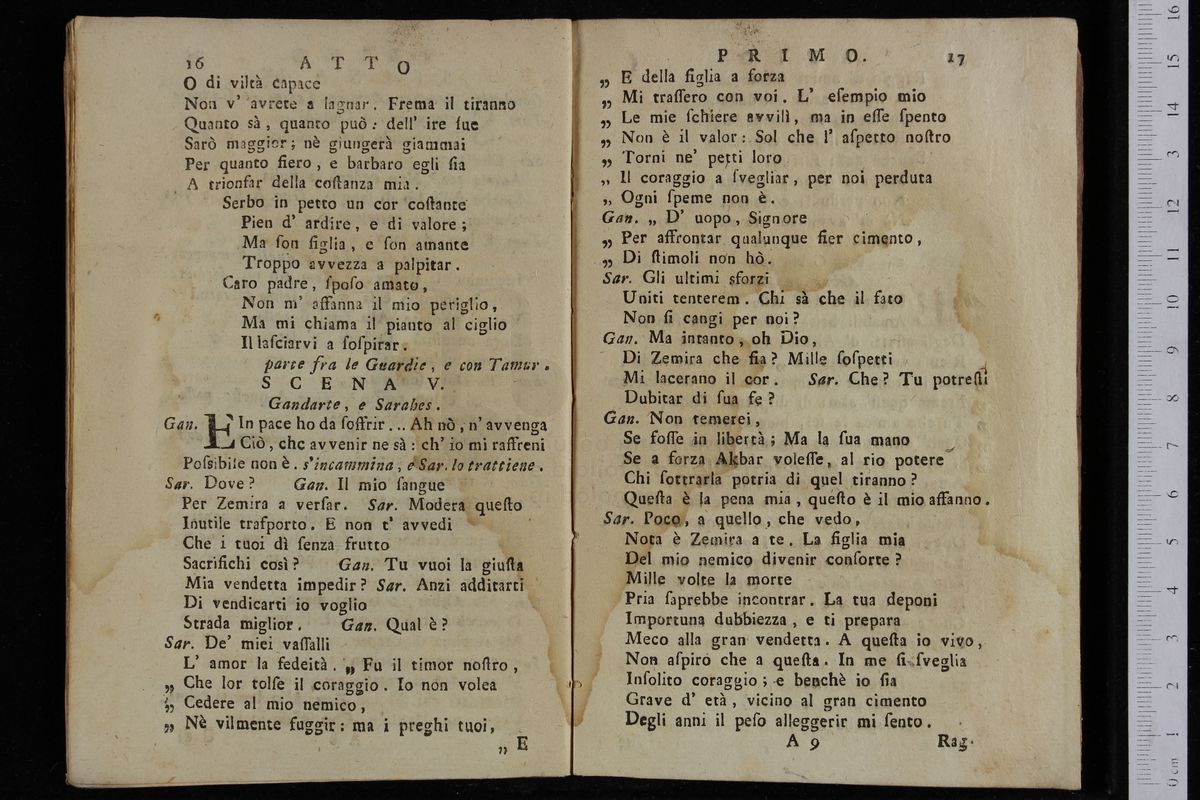 16 ATTO
O di viltà capace
Non v' avrete a lagnar. Frema il tiranno
Quanto sà, quanto può: dell' ire ſue
Sarò maggior; nè giungerà giammai
Per quanto fiero, e barbaro egli ſia
A trionfar della coſtanza mia.
Serbo in petto un cor coſtante
Pien d' ardire, e di valore;
Ma ſon figlia, e ſon amante
Troppo avvezza a palpitar.
Caro padre, ſpoſo amato,
Non m' affanna il mio periglio,
Ma mi chiama il pianto al ciglio
Il laſciarvi a ſoſpirar.
parte fra le Guardie, e con Tamur.
SCENA V.
Gandarte, e Sarabes.
Gan. E In pace ho da ſoffrir... Ah nò, n' avvenga
Ciò, che avvenir ne sà: ch' io mi raffreni
Poſsibile non è. s'incammina, e Sar. lo trattiene.
Sar. Dove? Gan. Il mio ſangue
Per Zemira a verſar. Sar. Modera queſto
Inutile traſporto. E non t' avvedi
Che i tuoi dì ſenza frutto
Sacrifichi così? Gan. Tu vuoi la giuſta
Mia vendetta impedir? Sar. Anzi additarti
Di vendicarti io voglio
Strada miglior. Gan. Qual è?
Sar. De' miei vaſſalli
L' amor la fedeltà. „ Fu il timor noſtro,
„ Che lor tolſe il coraggio. Io non volea
„ Cedere al mio nemico,
„ Nè vilmente fuggir: ma i preghi tuoi,
„ E
PRIMO. 17
„ E della figlia a forza
„ Mi traſſero con voi. L' eſempio mio
„ Le mie ſchiere avvilì, ma in eſſe ſpento
„ Non è il valor: Sol che l' aſpetto noſtro
„ Torni ne' petti loro
„ Il coraggio a ſvegliar, per noi perduta
„ Ogni ſpeme non è.
Gan. „ D' uopo, Signore
„ Per affrontar qualunque fier cimento,
„ Di ſtimoli non hò.
Sar. Gli ultimi sforzi
Uniti tenterem. Chi sà che il fato
Non ſi cangi per noi?
Gan. Ma intanto, oh Dio,
Di Zemira che fia? Mille ſoſpetti
Mi lacerano il cor. Sar. Che? Tu potreſti
Dubitar di ſua fe?
Gan. Non temerei,
Se foſſe in libertà; Ma la ſua mano
Se a forza Akbar voleſſe, al rio potere
Chi ſottrarla potria di quel tiranno?
Queſta è la pena mia, queſto è il mio affanno.
Sar. Poco, a quello, che vedo,
Nota è Zemira a te. La figlia mia
Del mio nemico divenir conſorte?
Mille volte la morte
Pria ſaprebbe incontrar. La tua deponi
Importuna dubbiezza, e ti prepara
Meco alla gran vendetta. A queſta io vivo,
Non aſpiro che a queſta. In me ſi ſveglia
Inſolito coraggio; e benchè io ſia
Grave d' età, vicino al gran cimento
Degli anni il peſo alleggerir mi ſento.
A 9 Rag-
0 cm 1 2 3 4 5 6 7 8 9 10 11 12 13 14 15 16